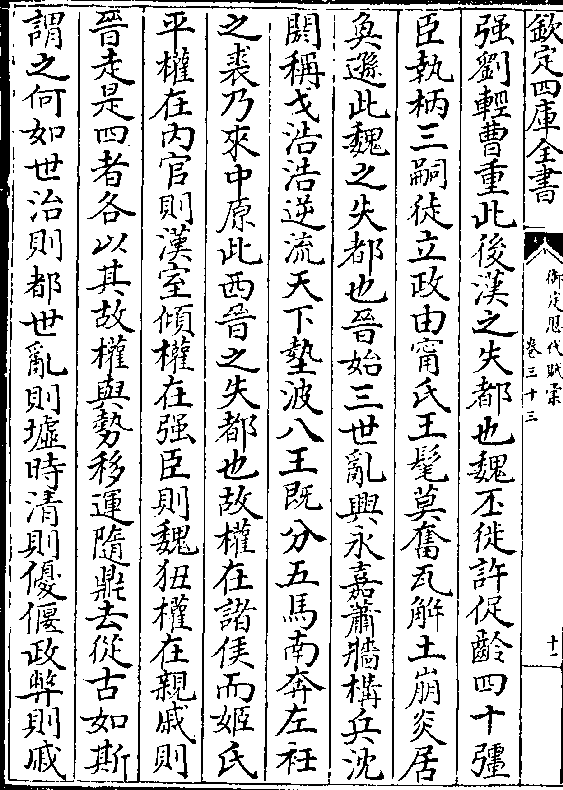 欽定四庫全書
御定歷代賦彙
卷三十三
十二
强劉輕曹重此後漢之失都也魏丕徙許促齡四十彊
臣執柄三嗣徒立政由甯氏王髦莫奮瓦解土崩炎居
奐遜此魏之失都也晉始三世亂興永嘉蕭牆構兵沈
閼稱戈浩浩逆流天下墊波八王既分五馬南奔左衽
之裘乃來中原此西晉之失都也故權在諸侯而姬氏
平權在內官則漢室傾權在强臣則魏狃權在親戚則
晉走是四者各以其故權與勢移運隨鼎去從古如斯
謂之何如世治則都世亂則墟時清則優偃政弊則戚